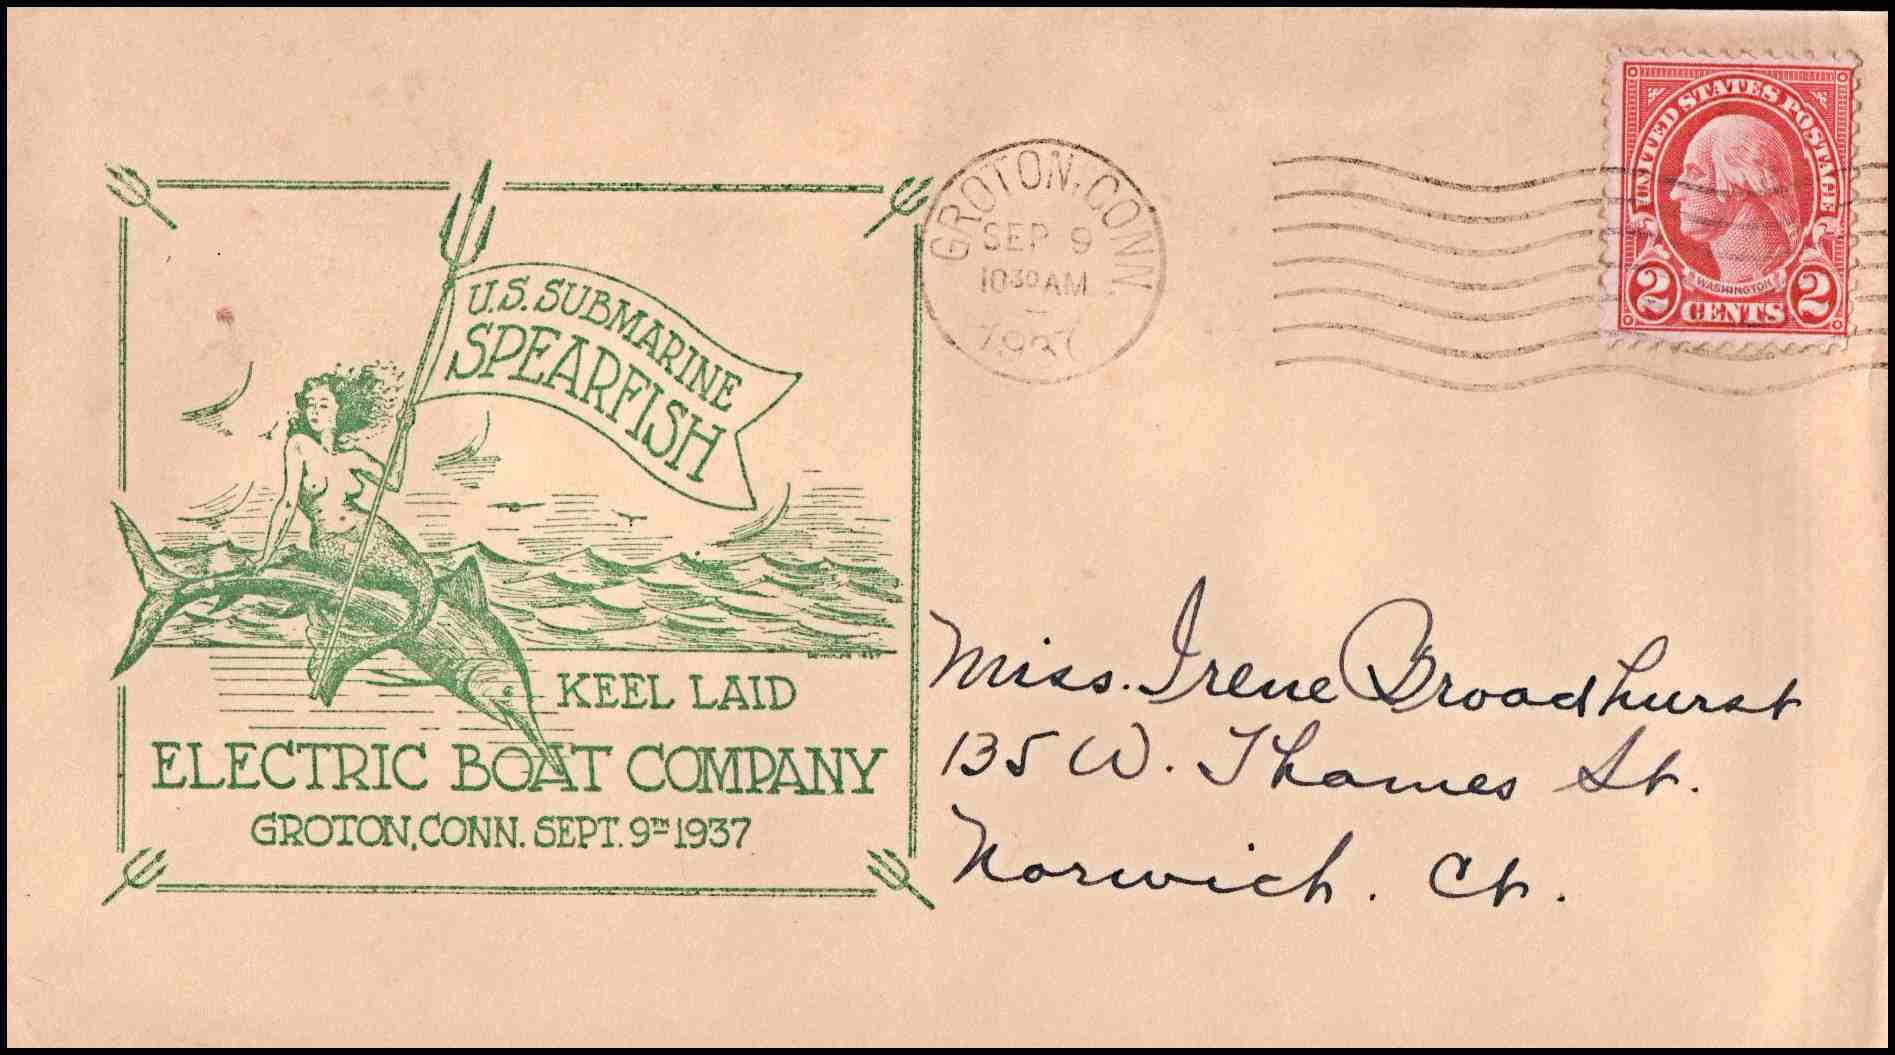 U.S. SUBMARINE
SPEARFISH
KEEL LAID
ELECTRIC BOAT COMPANY
GROTON, CONN. SEPT. 9TH 1937
GROTON, CONN
SEP 9
10 30 AM
1937
UNITED STATES POSTAGE
WASHINGTON
2 CENTS 2
Miss. Irene Broadhurst
135 W. Thames St.
Norwich. Ct.